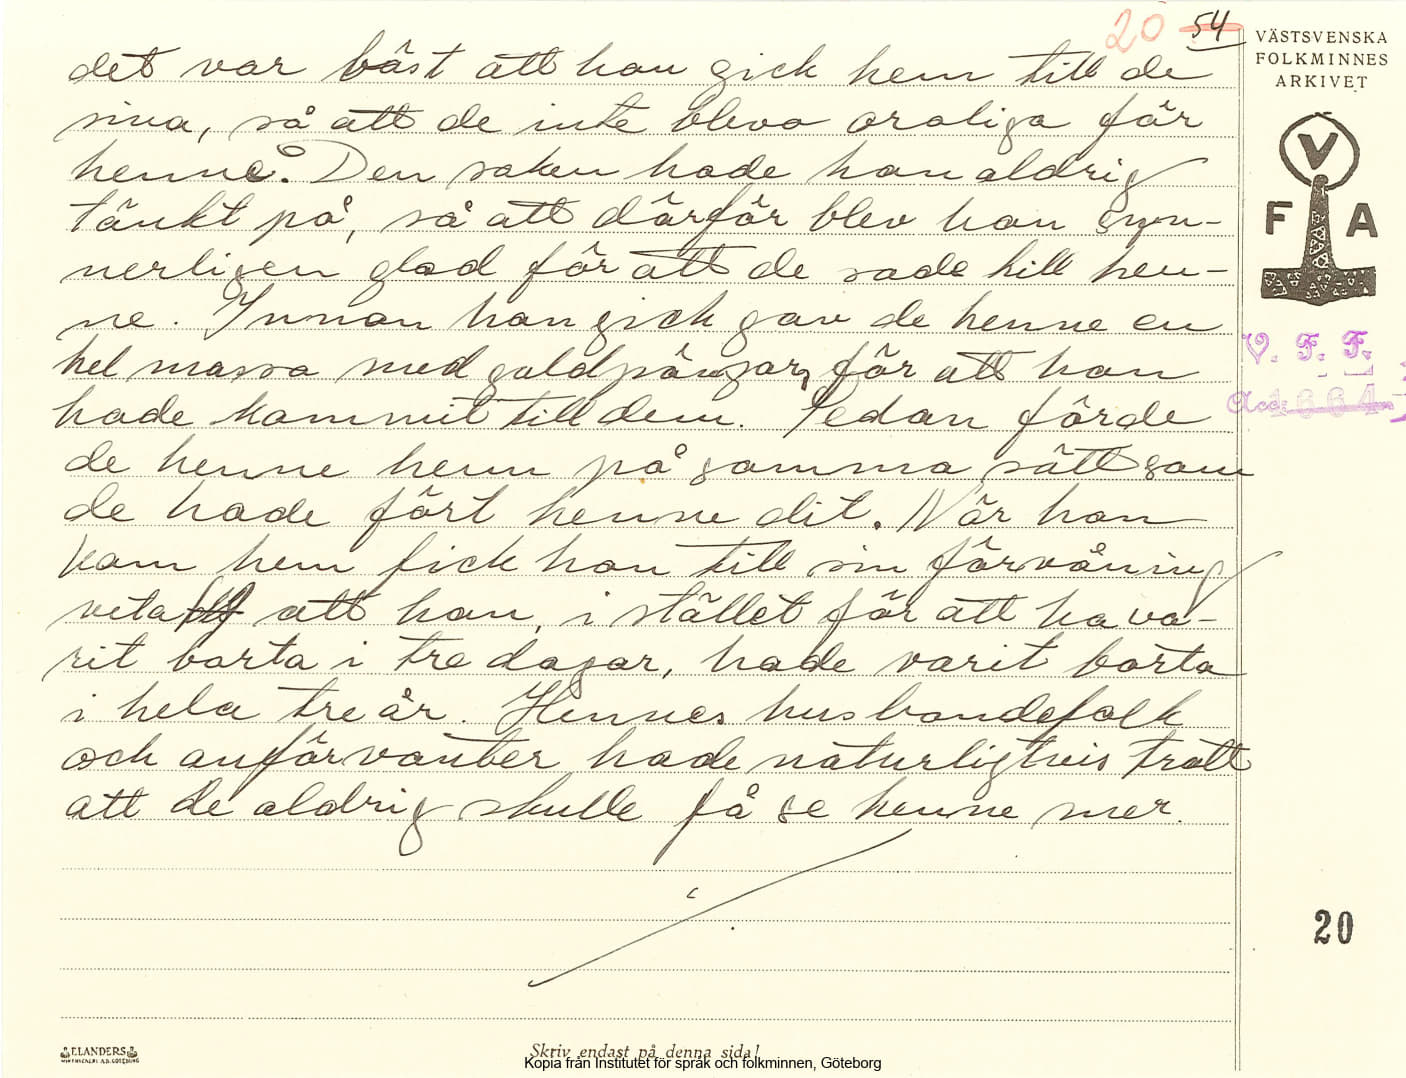 20 54
det var bäst att hon gick hem till de
sina, så att de inte blevo oroliga för
henne. Den saken hade hon aldrig
tänkt på, så att därför blev hon syn-
nerligen glad för att de sade till hen-
ne. Innan hon gick gav de henne en
hel massa med guldpängar, för att hon
hade kommit till dem. Sedan förde
de henne hem på samma sätt som
de hade fört henne dit. När hon
kom hem fick hon till sin förvåning
veta att hon, i stället för att ha va-
rit borta i tre dagar, hade varit borta
i hela tre år. Hennes husbondefolk
och anförvanter hade naturligtvis trott
att de aldrig skulle få se henne mer.
VÄSTSVENSKA
FOLKMINNES
ARKIVET
V
F A
V. F. F.
Acc: 1664
20
ELANDERS
Skriv endast på denna sida!
Kopia från Institutet för språk och folkminnen, Göteborg